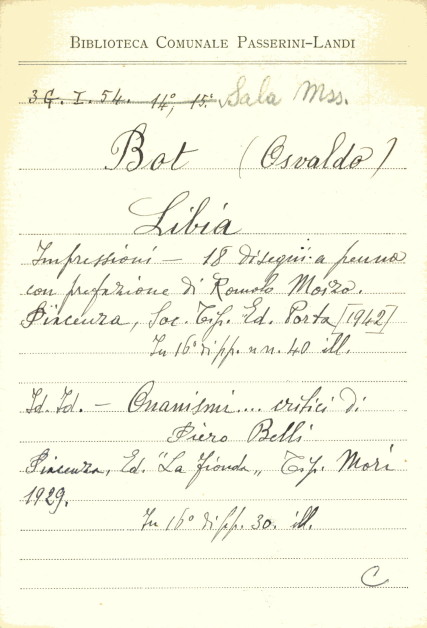 BIBLIOTECA COMUNALE PASSERINI-LANDI
3 G. I. 54. 14º, 15º Sala Mss.
Bot (Osvaldo)
Libia
Impressioni - 18 disegni a penna
con prefazione di Romolo Moizo.
Piacenza, Soc. Tip. Ed. Porta [1942]
In 16º di pp. n n. 40 ill.
Id. Id. - Onanismi.... critici di
Piero Belli
Piacenza, Ed. "La Fionda" Tip. Mori
1929.
In 16º di pp. 30. ill.
C